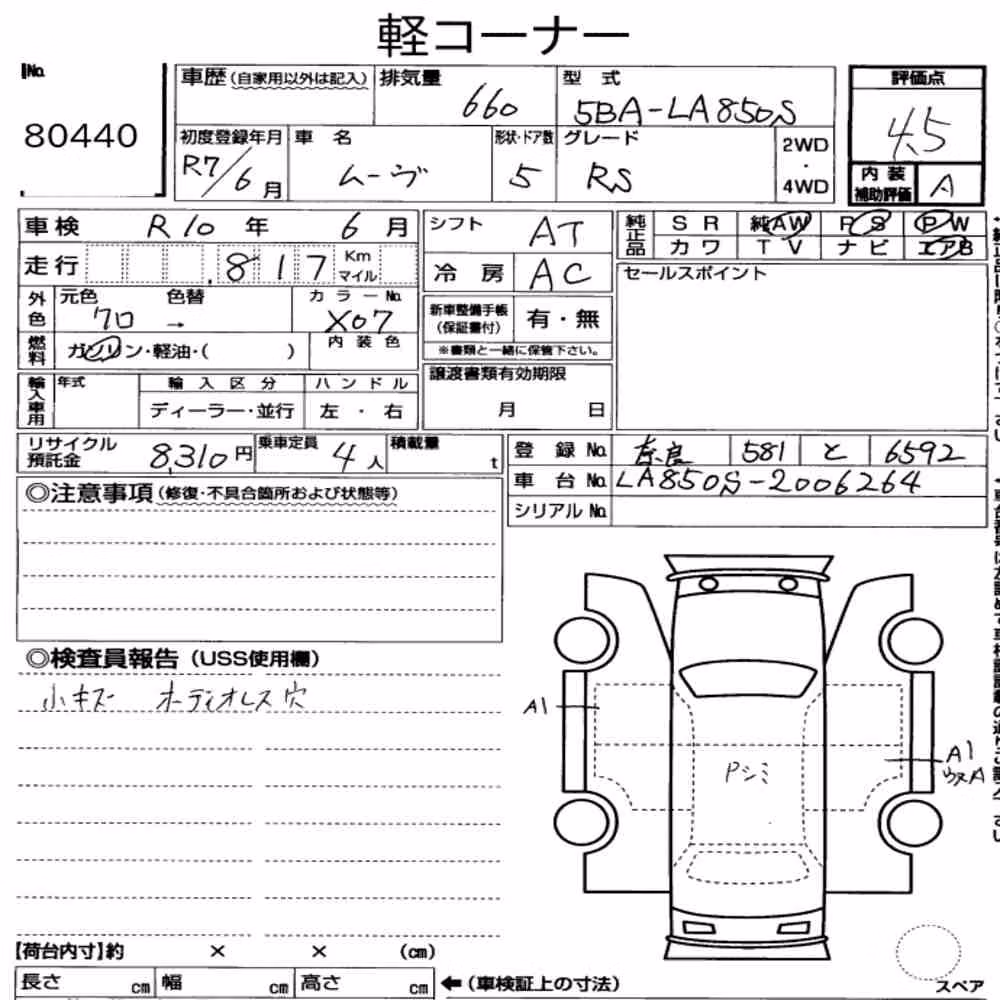 軽コーナー
No.
80440
車歴（自家用以外は記入） 排気量 660 型式 5BA-LA850S
初度登録年月 R7/6月 車名 ムーヴ 形状・ドア数 5 グレード RS 2WD・4WD
評価点
4.5
内装補助評価 A
車検 R10年 6月
走行 817 Km マイル
外色 元色 クロ 色替 → カラーNo. X07
燃料 ガソリン・軽油・( ) 内装色
シフト AT
冷房 AC
新車整備手帳（保証書付） 有・無
※書類と一緒に保管下さい。
純正品 SR 純AW PS PW
カワ TV ナビ エアB
セールスポイント
輸入車用 年式 輸入区分 ハンドル
ディーラー・並行 左・右
譲渡書類有効期限
月 日
リサイクル預託金 8,310円 乗車定員 4人 積載量 t
登録No. 奈良 581 と 6592
車台No. LA850S-2006264
シリアルNo.
◎注意事項（修復・不具合箇所および状態等）
◎検査員報告（USS使用欄）
小キズ オーディオレス穴
A1
A1
Pシミ
【荷台内寸】約 × × (cm)
長さ cm 幅 cm 高さ cm ←（車検証上の寸法）
スペア